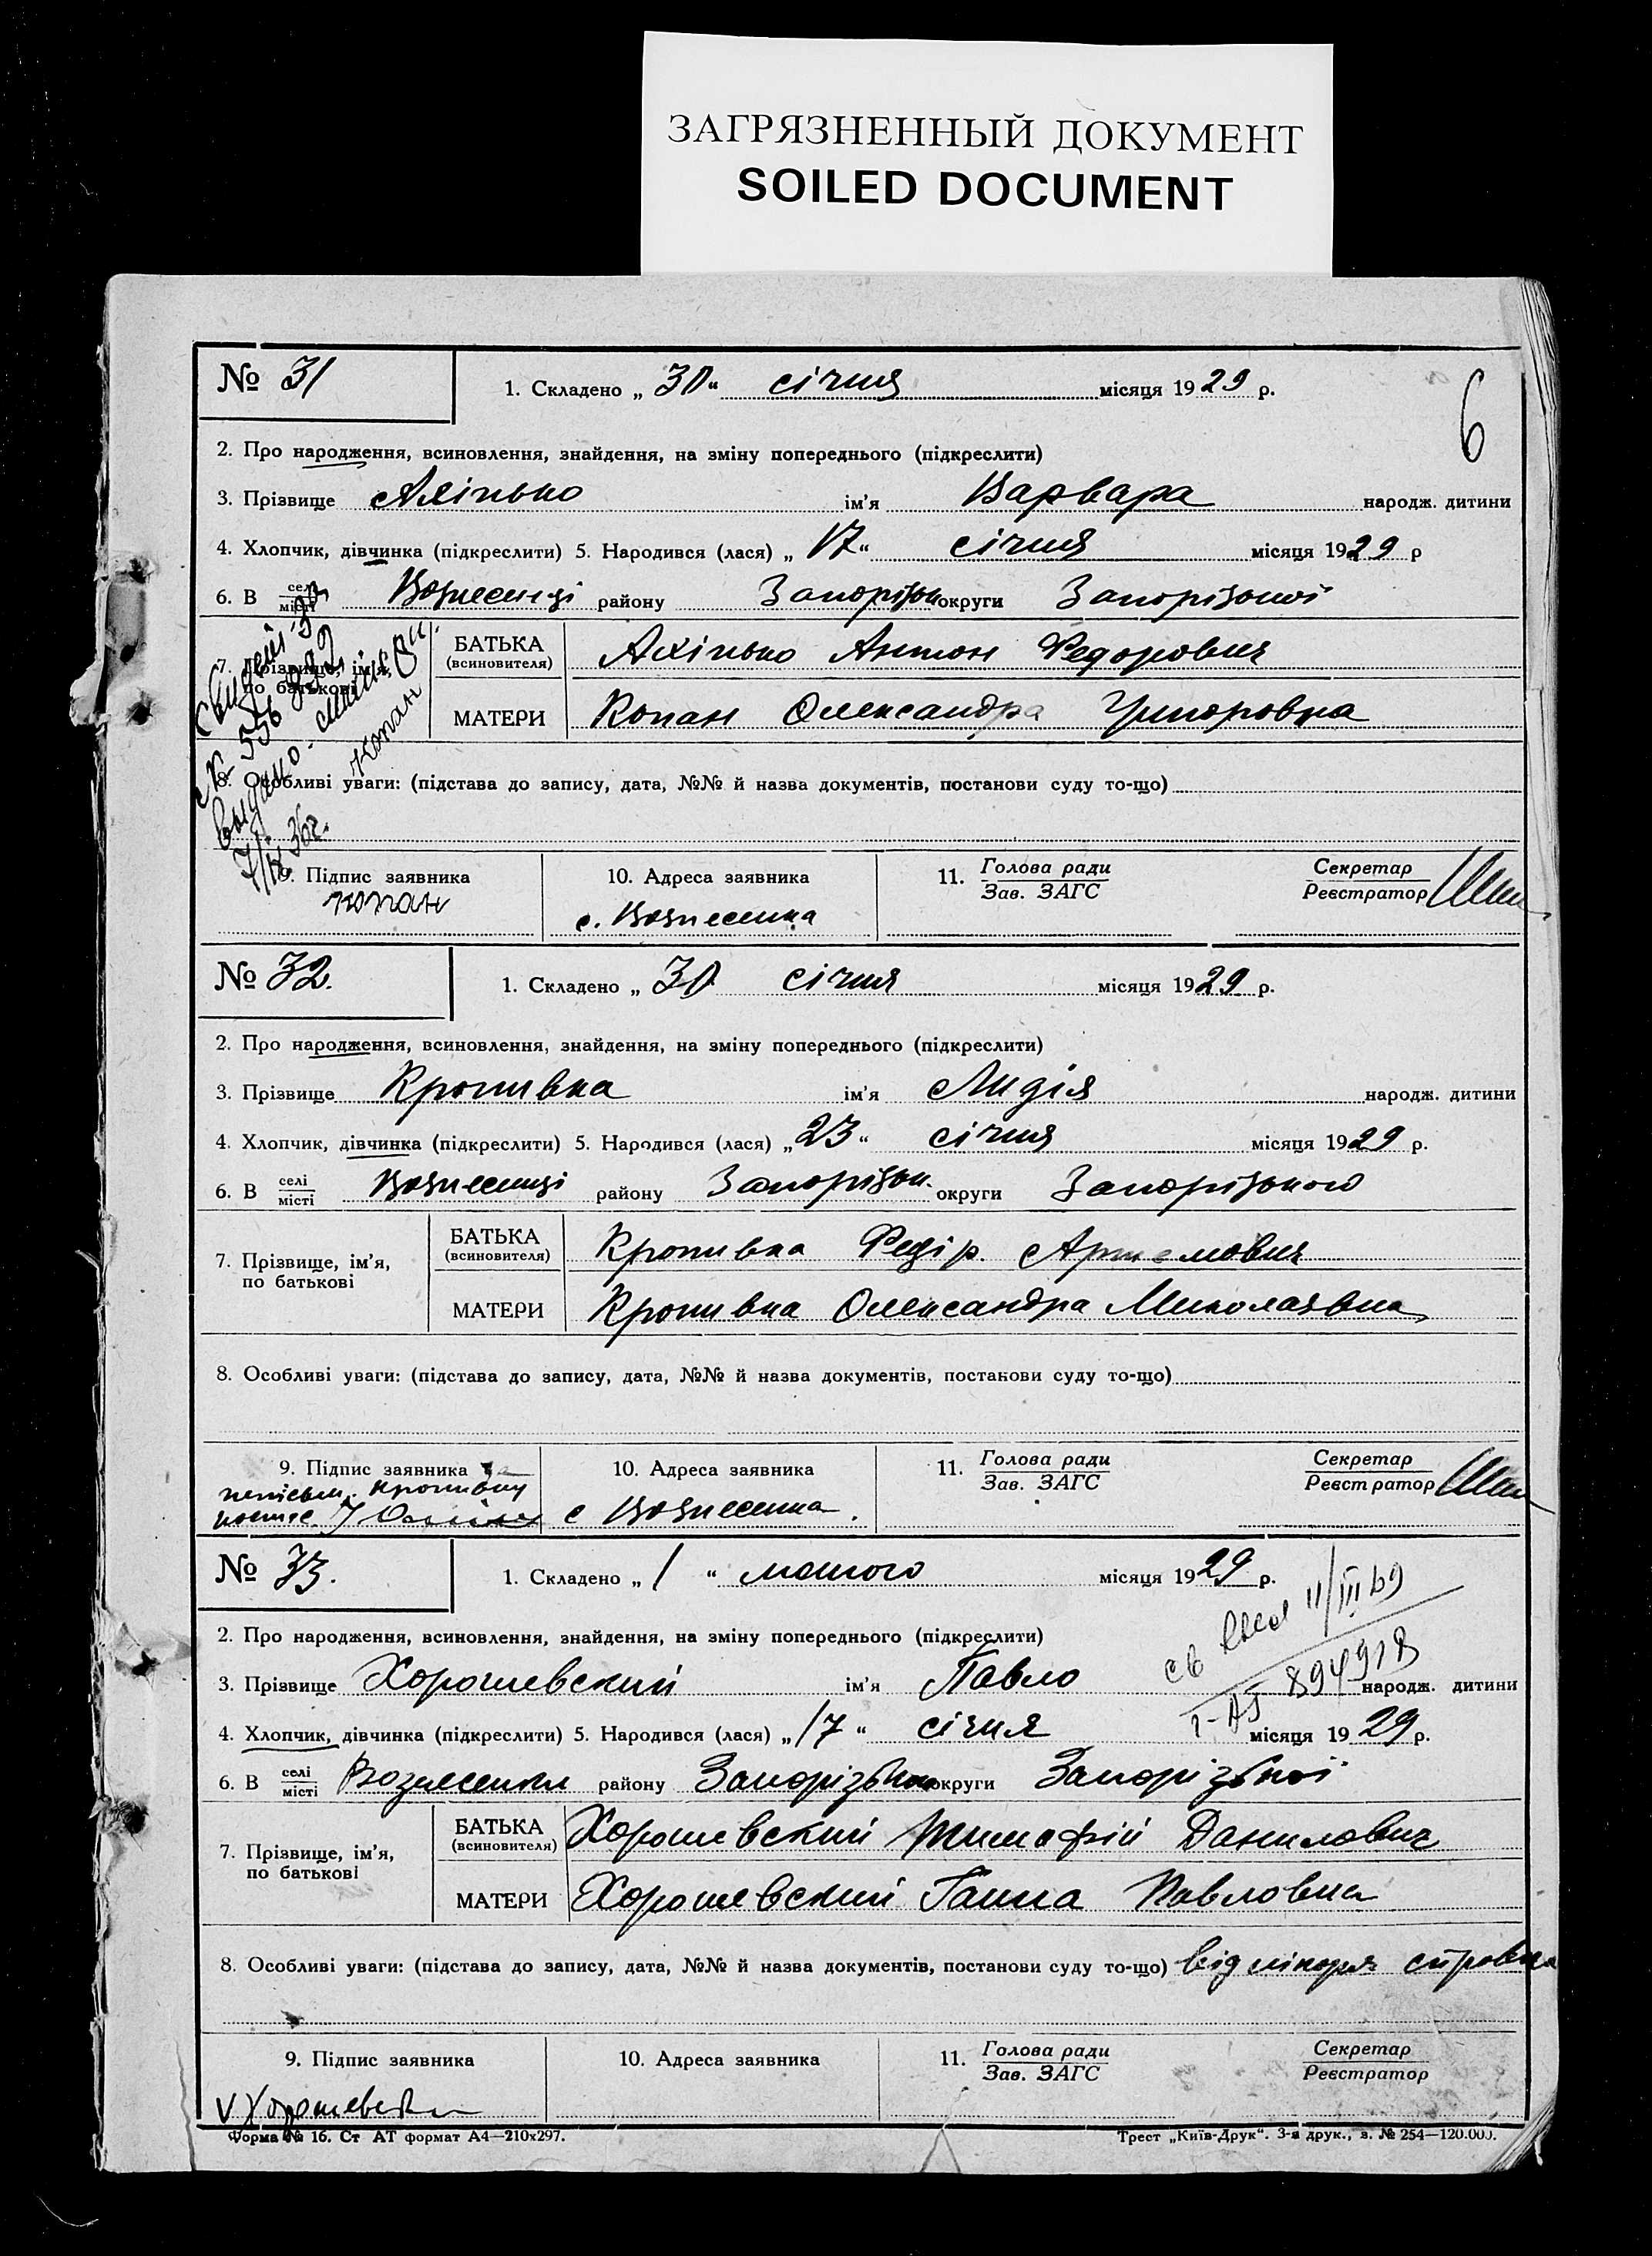 ЗАГРЯЗНЕННЫЙ ДОКУМЕНТ
SOILED DOCUMENT
6
№ 31 1. Складено „ 30 “ січня місяця 1929 р.
2. Про народження, всиновлення, знайдення, на зміну попереднього (підкреслити)
3. Прізвище Ахінько ім'я Варвара народж. дитини
4. Хлопчик, дівчинка (підкреслити) 5. Народився (лася) „ 17 “ січня місяця 1929 р
6. В селі місті Вознесенці району Запорізьк округи Запорізької
7. Прізвище, ім'я, по батькові
БАТЬКА (всиновителя) Ахінько Антон Федорович
МАТЕРИ Копан Олександра
8. Особливі уваги: (підстава до запису, дата, №№ й назва документів, постанови суду то-що)
9. Підпис заявника 10. Адреса заявника 11. Голова ради Зав. ЗАГС Секретар Реєстратор
Копан с. Вознесенка
№ 32. 1. Складено „ 30 січня місяця 1929 р.
2. Про народження, всиновлення, знайдення, на зміну попереднього (підкреслити)
3. Прізвище Кропивка ім'я Лидія народж. дитини
4. Хлопчик, дівчинка (підкреслити) 5. Народився (лася) „ 23 “ січня місяця 1929 р.
6. В селі місті Вознесенці району Запорізьк. округи Запорізького
7. Прізвище, ім'я, по батькові
БАТЬКА (всиновителя) Кропивка Федір Артемович
МАТЕРИ Кропивка Олександра Миколаївна
8. Особливі уваги: (підстава до запису, дата, №№ й назва документів, постанови суду то-що)
9. Підпис заявника за 10. Адреса заявника 11. Голова ради Зав. ЗАГС Секретар Реєстратор
с Вознесенка.
№ 33. 1. Складено „ 1 “ лютого місяця 1929 р.
2. Про народження, всиновлення, знайдення, на зміну попереднього (підкреслити)
3. Прізвище Хорошевский ім'я Павло народж. дитини
4. Хлопчик, дівчинка (підкреслити) 5. Народився (лася) „ 17 “ січня місяця 1929 р.
6. В селі місті району Запорізької округи Запорізької
7. Прізвище, ім'я, по батькові
БАТЬКА (всиновителя) Хорошевский Тимофій Данилович
МАТЕРИ Хорошевский Ганна Павловна
8. Особливі уваги: (підстава до запису, дата, №№ й назва документів, постанови суду то-що) від лікаря справка
9. Підпис заявника 10. Адреса заявника 11. Голова ради Зав. ЗАГС Секретар Реєстратор
Форма № 16. Ст АТ формат А4—210х297. Трест „Київ-Друк“. 3-я друк., з. № 254—120.000.